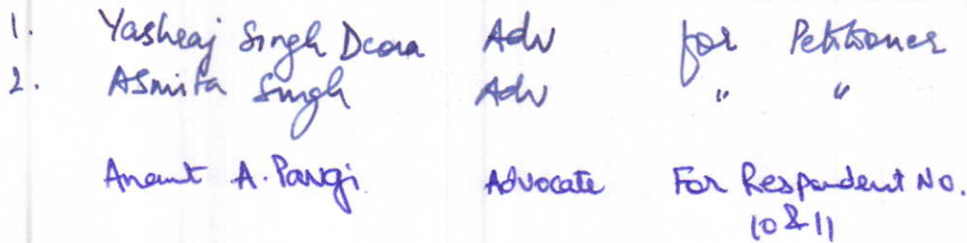 1. Yashraj Singh Deora Adv for Petitioner
2. Asmita Singh Adv " "
Anant A. Pavgi. Advocate For Respondent No.
10 & 11